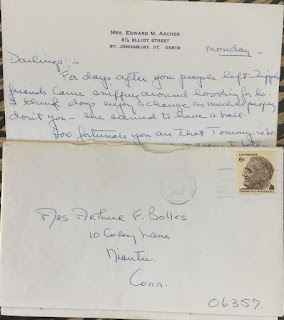 MRS. EDWARD M. ARCHER
8½ ELLIOT STREET
ST. JOHNSBURY, VT. 05819
Monday -
Darlings: -
For days after you people left
friends came sniffing around looking for her.
I think dogs enjoy a change as much as people,
don't you - she seemed to have a ball.
How fortunate you are that Tommy is so
U.S. POSTAGE
6¢
FRANKLIN D. ROOSEVELT
Mrs Arthur F. Bolles
10 Lane
Niantic
Conn.
06357